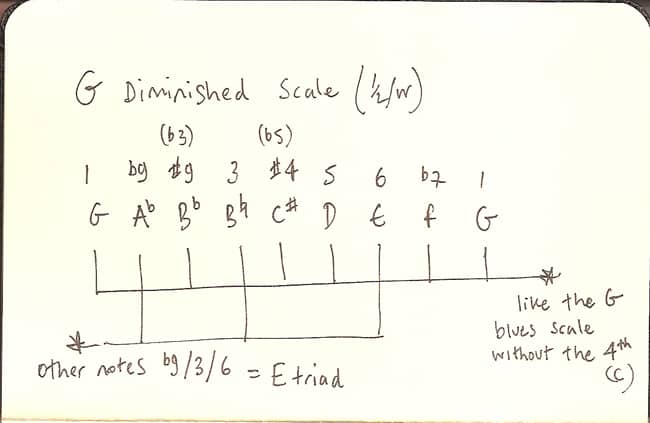 G Diminished Scale (1/2/W)
(b3) (b5)
1 b9 #9 3 #4 5 6 b7 1
G A♭ B♭ B♮ C# D E F G
like the G
blues scale
without the 4th
(C)
other notes b9/3/6 = E triad